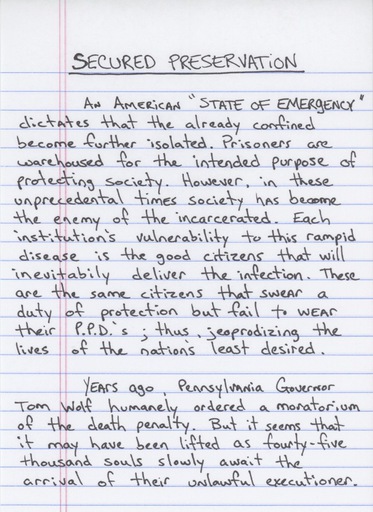 SECURED PRESERVATION
An American "STATE OF EMERGENCY"
dictates that the already confined
become further isolated. Prisoners are
warehoused for the intended purpose of
protecting society. However, in these
unprecedental times society has become
the enemy of the incarcerated. Each
institution's vulnerability to this rampid
disease is the good citizens that will
inevitabily deliver the infection. These
are the same citizens that swear a
duty of protection but fail to wear
their P.P.D.'s ; thus, jeoprodizing the
lives of the nation's least desired.
Years ago, Pennsylvania Governor
Tom Wolf humanely ordered a moratorium
of the death penalty. But it seems that
it may have been lifted as fourty-five
thousand souls slowly await the
arrival of their unlawful executioner.